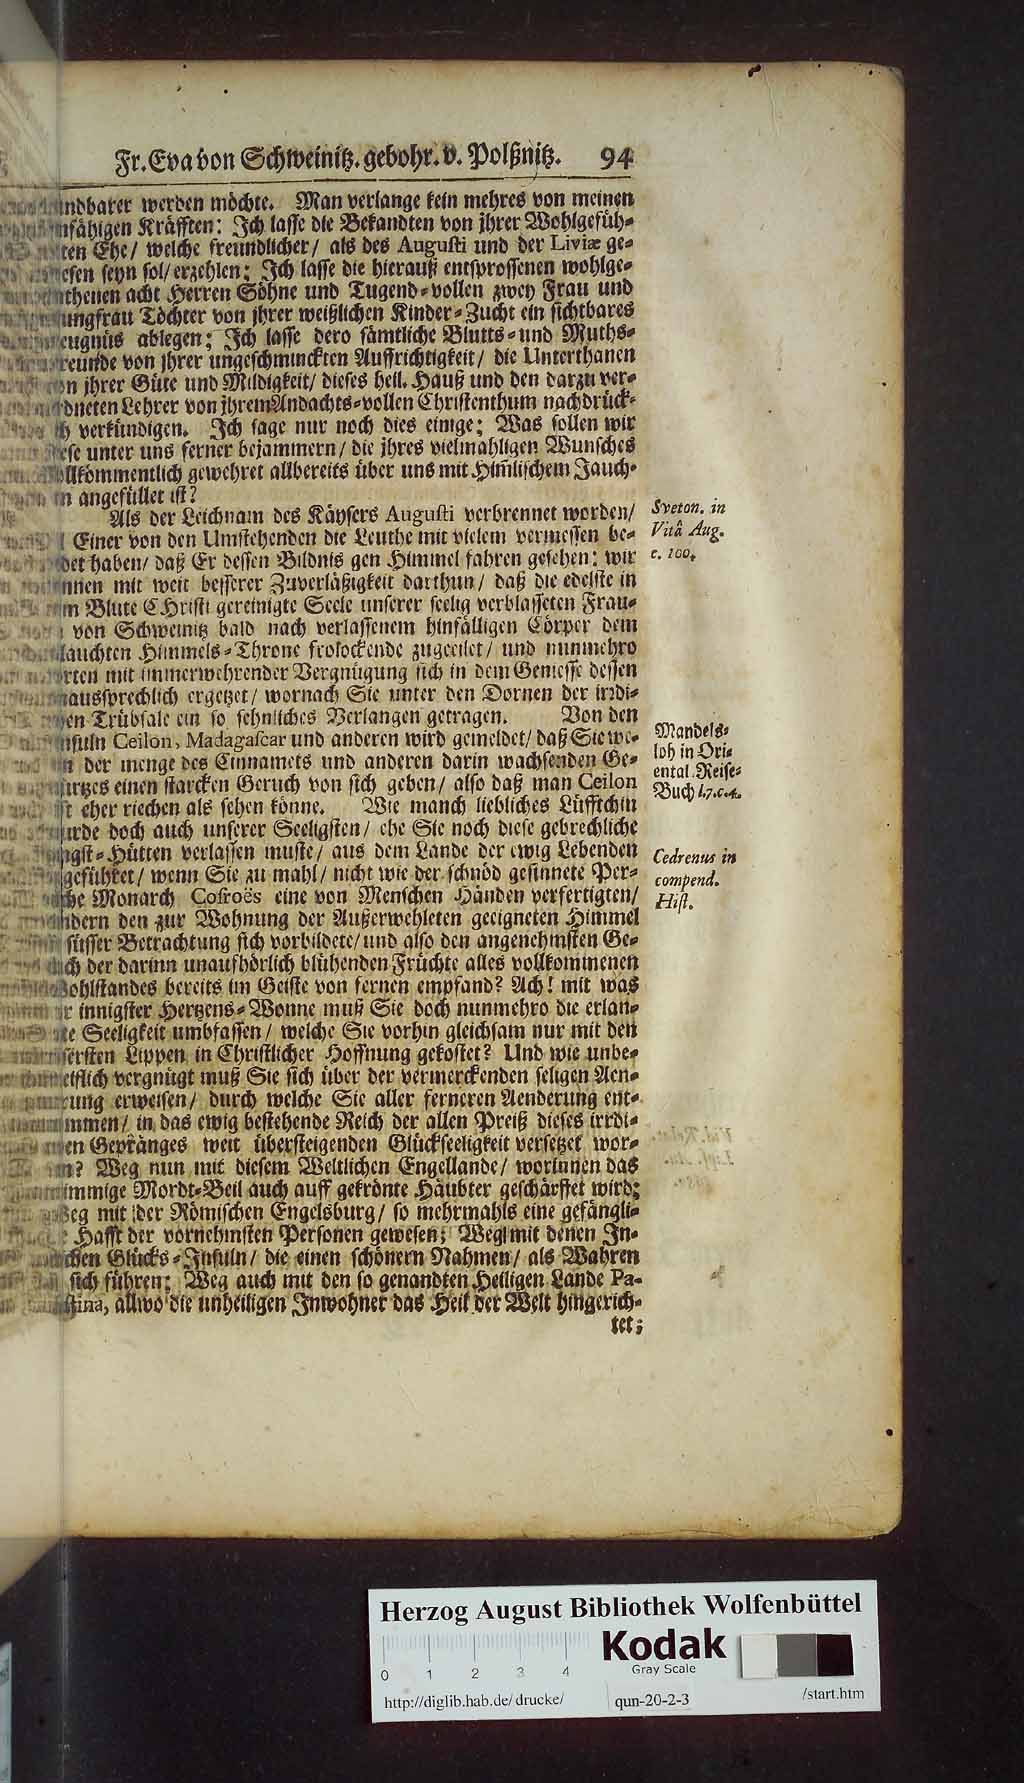 Fr. Eva von Schweinitz. gebohr. v. Polßnitz. 94
werden möchte. Man verlange kein mehres von meinen
Kräfften: Ich lasse die Bekandten von jhrer Wohlgefüh-
Ehe/ welche freundlicher/ als des Augusti und der Liviæ ge-
seyn sol/ erzehlen: Ich lasse die hierauß entsprossenen wohlge-
acht Herren Söhne und Tugend-vollen zwey Frau und
Töchter von jhrer weißlichen Kinder-Zucht ein sichtbares
ablegen; Ich lasse dero sämtliche Blutts- und Muths-
von jhrer ungeschminckten Auffrichtigkeit/ die Unterthanen
jhrer Güte und Mildigkeit/ dieses heil. Hauß und den darzu ver-
Lehrer von jhrem Andachts-vollen Christenthum nachdrück-
verkündigen. Ich sage nur noch dies einige; Was sollen wir
unter uns ferner bejammern/ die jhres vielmahligen Wunsches
gewehret allbereits über uns mit Him̃lischem Jauch-
angefüllet ist?
Als der Leichnam des Käysers Augusti verbrennet worden/
Einer von den Umstehenden die Leuthe mit vielem vermessen be-
haben/ daß Er dessen Bildnis gen Himmel fahren gesehen: wir
mit weit besserer Zuverläßigkeit darthun/ daß die edelste in
Blute CHristi gereinigte Seele unserer seelig verblasseten Frau-
von Schweinitz bald nach verlassenem hinfälligen Cörper dem
Himmels-Throne frolockende zugeeilet/ und nunmehro
mit immerwehrender Vergnügung sich in dem Geniesse dessen
ergetzet/ wornach Sie unter den Dornen der irrdi-
Trübsale ein so sehnliches Verlangen getragen. Von den
Ceilon, Madagascar und anderen wird gemeldet/ daß Sie we-
der menge des Cinnamets und anderen darin wachsenden Ge-
einen starcken Geruch von sich geben/ also daß man Ceilon
eher riechen als sehen könne. Wie manch liebliches Lüfftchin
doch auch unserer Seeligsten/ ehe Sie noch diese gebrechliche
Hütten verlassen muste/ aus dem Lande der ewig Lebenden
wenn Sie zu mahl/ nicht wie der schnöd gesinnete Per-
Monarch Cosroës eine von Menschen Händen verfertigten/
den zur Wohnung der Außerwehleten geeigneten Himmel
süsser Betrachtung sich vorbildete/ und also den angenehmsten Ge-
der darinn unaufhörlich blühenden Früchte alles vollkommenen
bereits im Geiste von fernen empfand? Ach! mit was
innigster Hertzens-Wonne muß Sie doch nunmehro die erlan-
Seeligkeit umbfassen/ welche Sie vorhin gleichsam nur mit den
Lippen in Christlicher Hoffnung gekostet? Und wie unbe-
vergnügt muß Sie sich über der vermerckenden seligen Aen-
erweisen/ durch welche Sie aller ferneren Aenderung ent-
in das ewig bestehende Reich der allen Preiß dieses irrdi-
Gepränges weit übersteigenden Glückseeligkeit versetzet wor-
Weg nun mit diesem Weltlichen Engellande/ worinnen das
Mordt-Beil auch auff gekrönte Häubter geschärffet wird;
mit der Römischen Engelsburg/ so mehrmahls eine gefängli-
Hafft der vornehmsten Personen gewesen; Weg mit denen In-
Glücks-Insuln/ die einen schönern Nahmen/ als Wahren
sich führen; Weg auch mit den so genandten Heiligen Lande Pa-
allwo die unheiligen Inwohner das Heil der Welt hingerich-
tet;
Sveton. in
Vitâ Aug.
c. 100.
Mandels-
loh in Ori-
ental. Reise-
Buch l. 7. c. 4.
Cedrenus in
compend.
Hist.
Herzog August Bibliothek Wolfenbüttel
Kodak
Gray Scale
0 1 2 3 4
http://diglib.hab.de/drucke/ qun-20-2-3 /start.htm